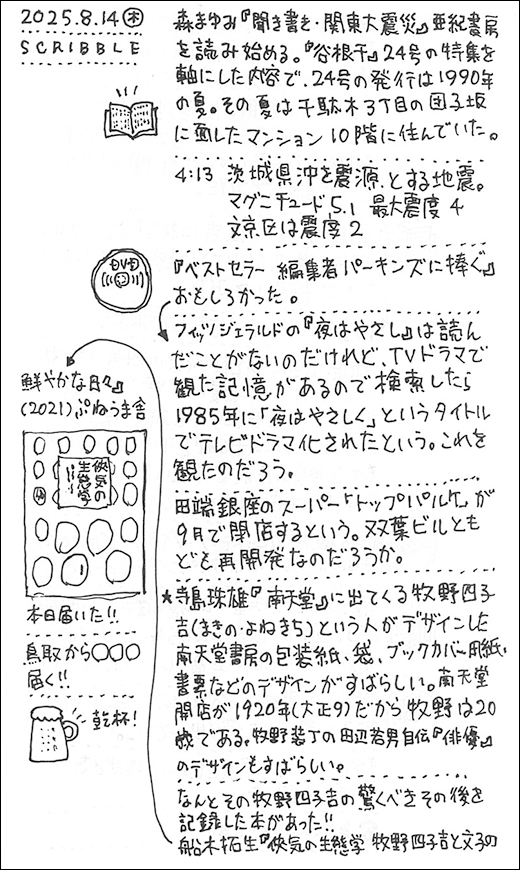 2025.8.14㊍
SCRIBBLE
森まゆみ『聞き書き・関東大震災』亜紀書房
を読み始める。『谷根千』24号の特集を
軸にした内容で、24号の発行は1990年
の夏。その夏は千駄木3丁目の団子坂
に面したマンション10階に住んでいた。
4:13 茨城県沖を震源とする地震。
マグニチュード5.1 最大震度4
文京区は震度2
DVD
『ベストセラー 編集者パーキンズに捧ぐ』
おもしろかった。
フィッツジェラルドの『夜はやさし』は読ん
だことがないのだけれど、TVドラマで
観た記憶があるので検索したら
1985年に「夜はやさしく」というタイトル
でテレビドラマ化されたという。これを
観たのだろう。
田端銀座のスーパー「トップパルケ」が
9月で閉店するという。双葉ビルとも
ども再開発なのだろうか。
★寺島珠雄『南天堂』に出てくる牧野四子
吉(まきの・よねきち)という人がデザインした
南天堂書房の包装紙、袋、ブックカバー用紙、
書票などのデザインがすばらしい。南天堂
開店が1920年(大正9)だから牧野は20
歳である。牧野装丁の田辺若男自伝『俳優』
のデザインもすばらしい。
なんとその牧野四子吉の驚くべきその後を
記録した本があった!!
船木拓生『侠気の生態学 牧野四子吉と文子の
鮮やかな日々』
(2021)ぷねうま舎
侠気の
生態学
本日届いた!!
鳥取から○○○
届く!!
乾杯!